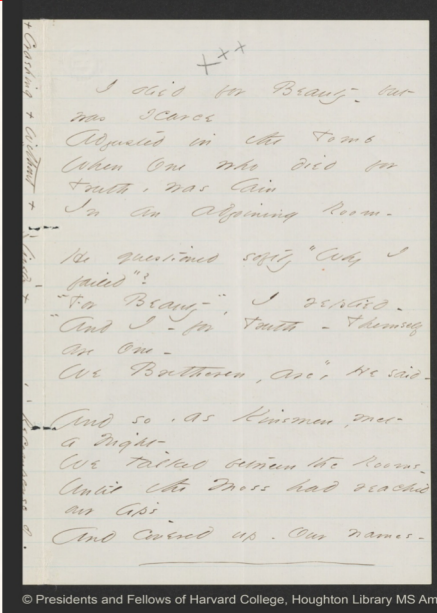 +++
I died for Beauty - but
was scarce
Adjusted in the Tomb
When One who died for
Truth, was lain
In an adjoining Room -
He questioned softly "Why I
failed"?
"For Beauty", I replied -
"And I - for Truth - Themself
are One -
We Bretheren, are", He said -
And so, as Kinsmen, met
a Night -
We talked between the Rooms -
Until the Moss had reached
our lips
And covered up - Our names -
+ Crashing + without +
© Presidents and Fellows of Harvard College, Houghton Library MS Am